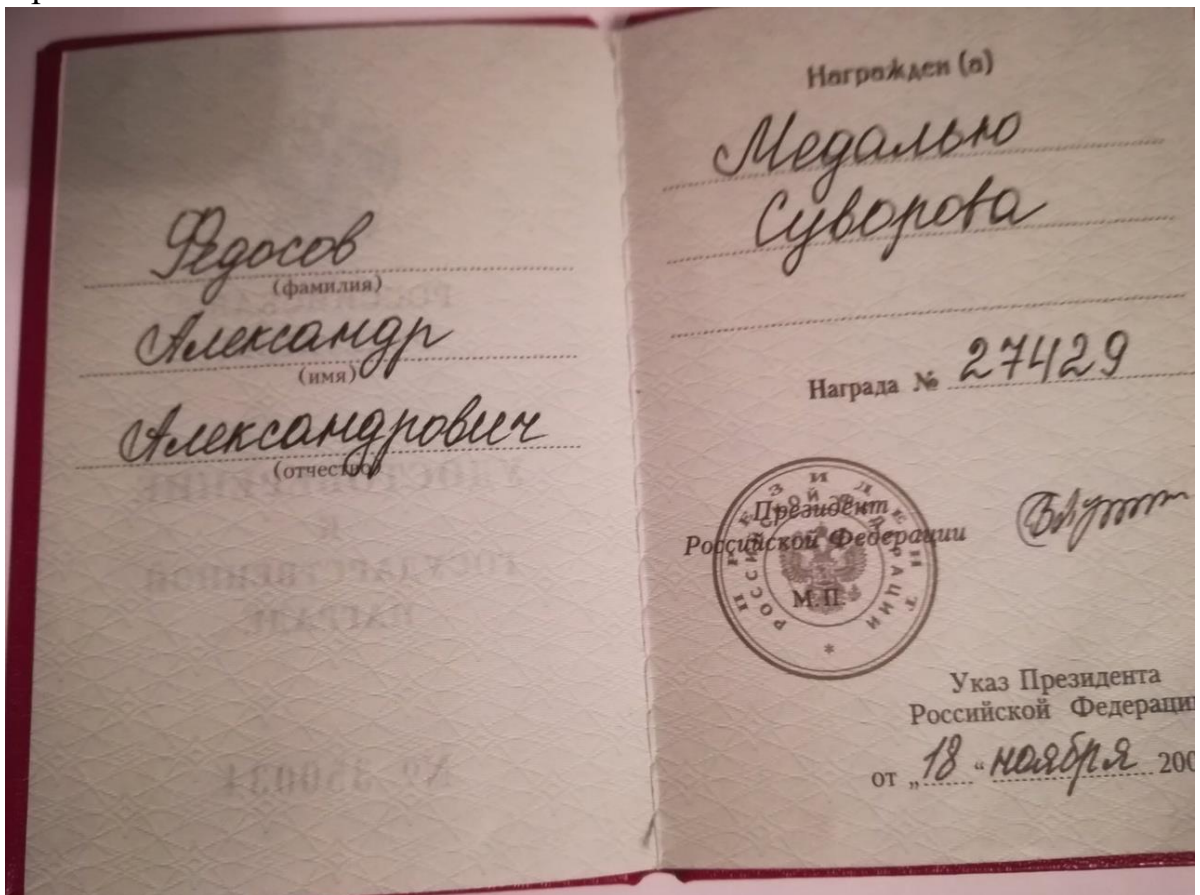 Федосов
(фамилия)
Александр
(имя)
Александрович
(отчество)
Награжден (а)
Медалью
Суворова
Награда № 27429
Президент
Российской Федерации
М.П.
ПРЕЗИДЕНТ
РОССИЙСКОЙ ФЕДЕРАЦИИ
Указ Президента
Российской Федерации
от „18“ ноября 200
УДОСТОВЕРЕНИЕ
К
ГОСУДАРСТВЕННОЙ
НАГРАДЕ